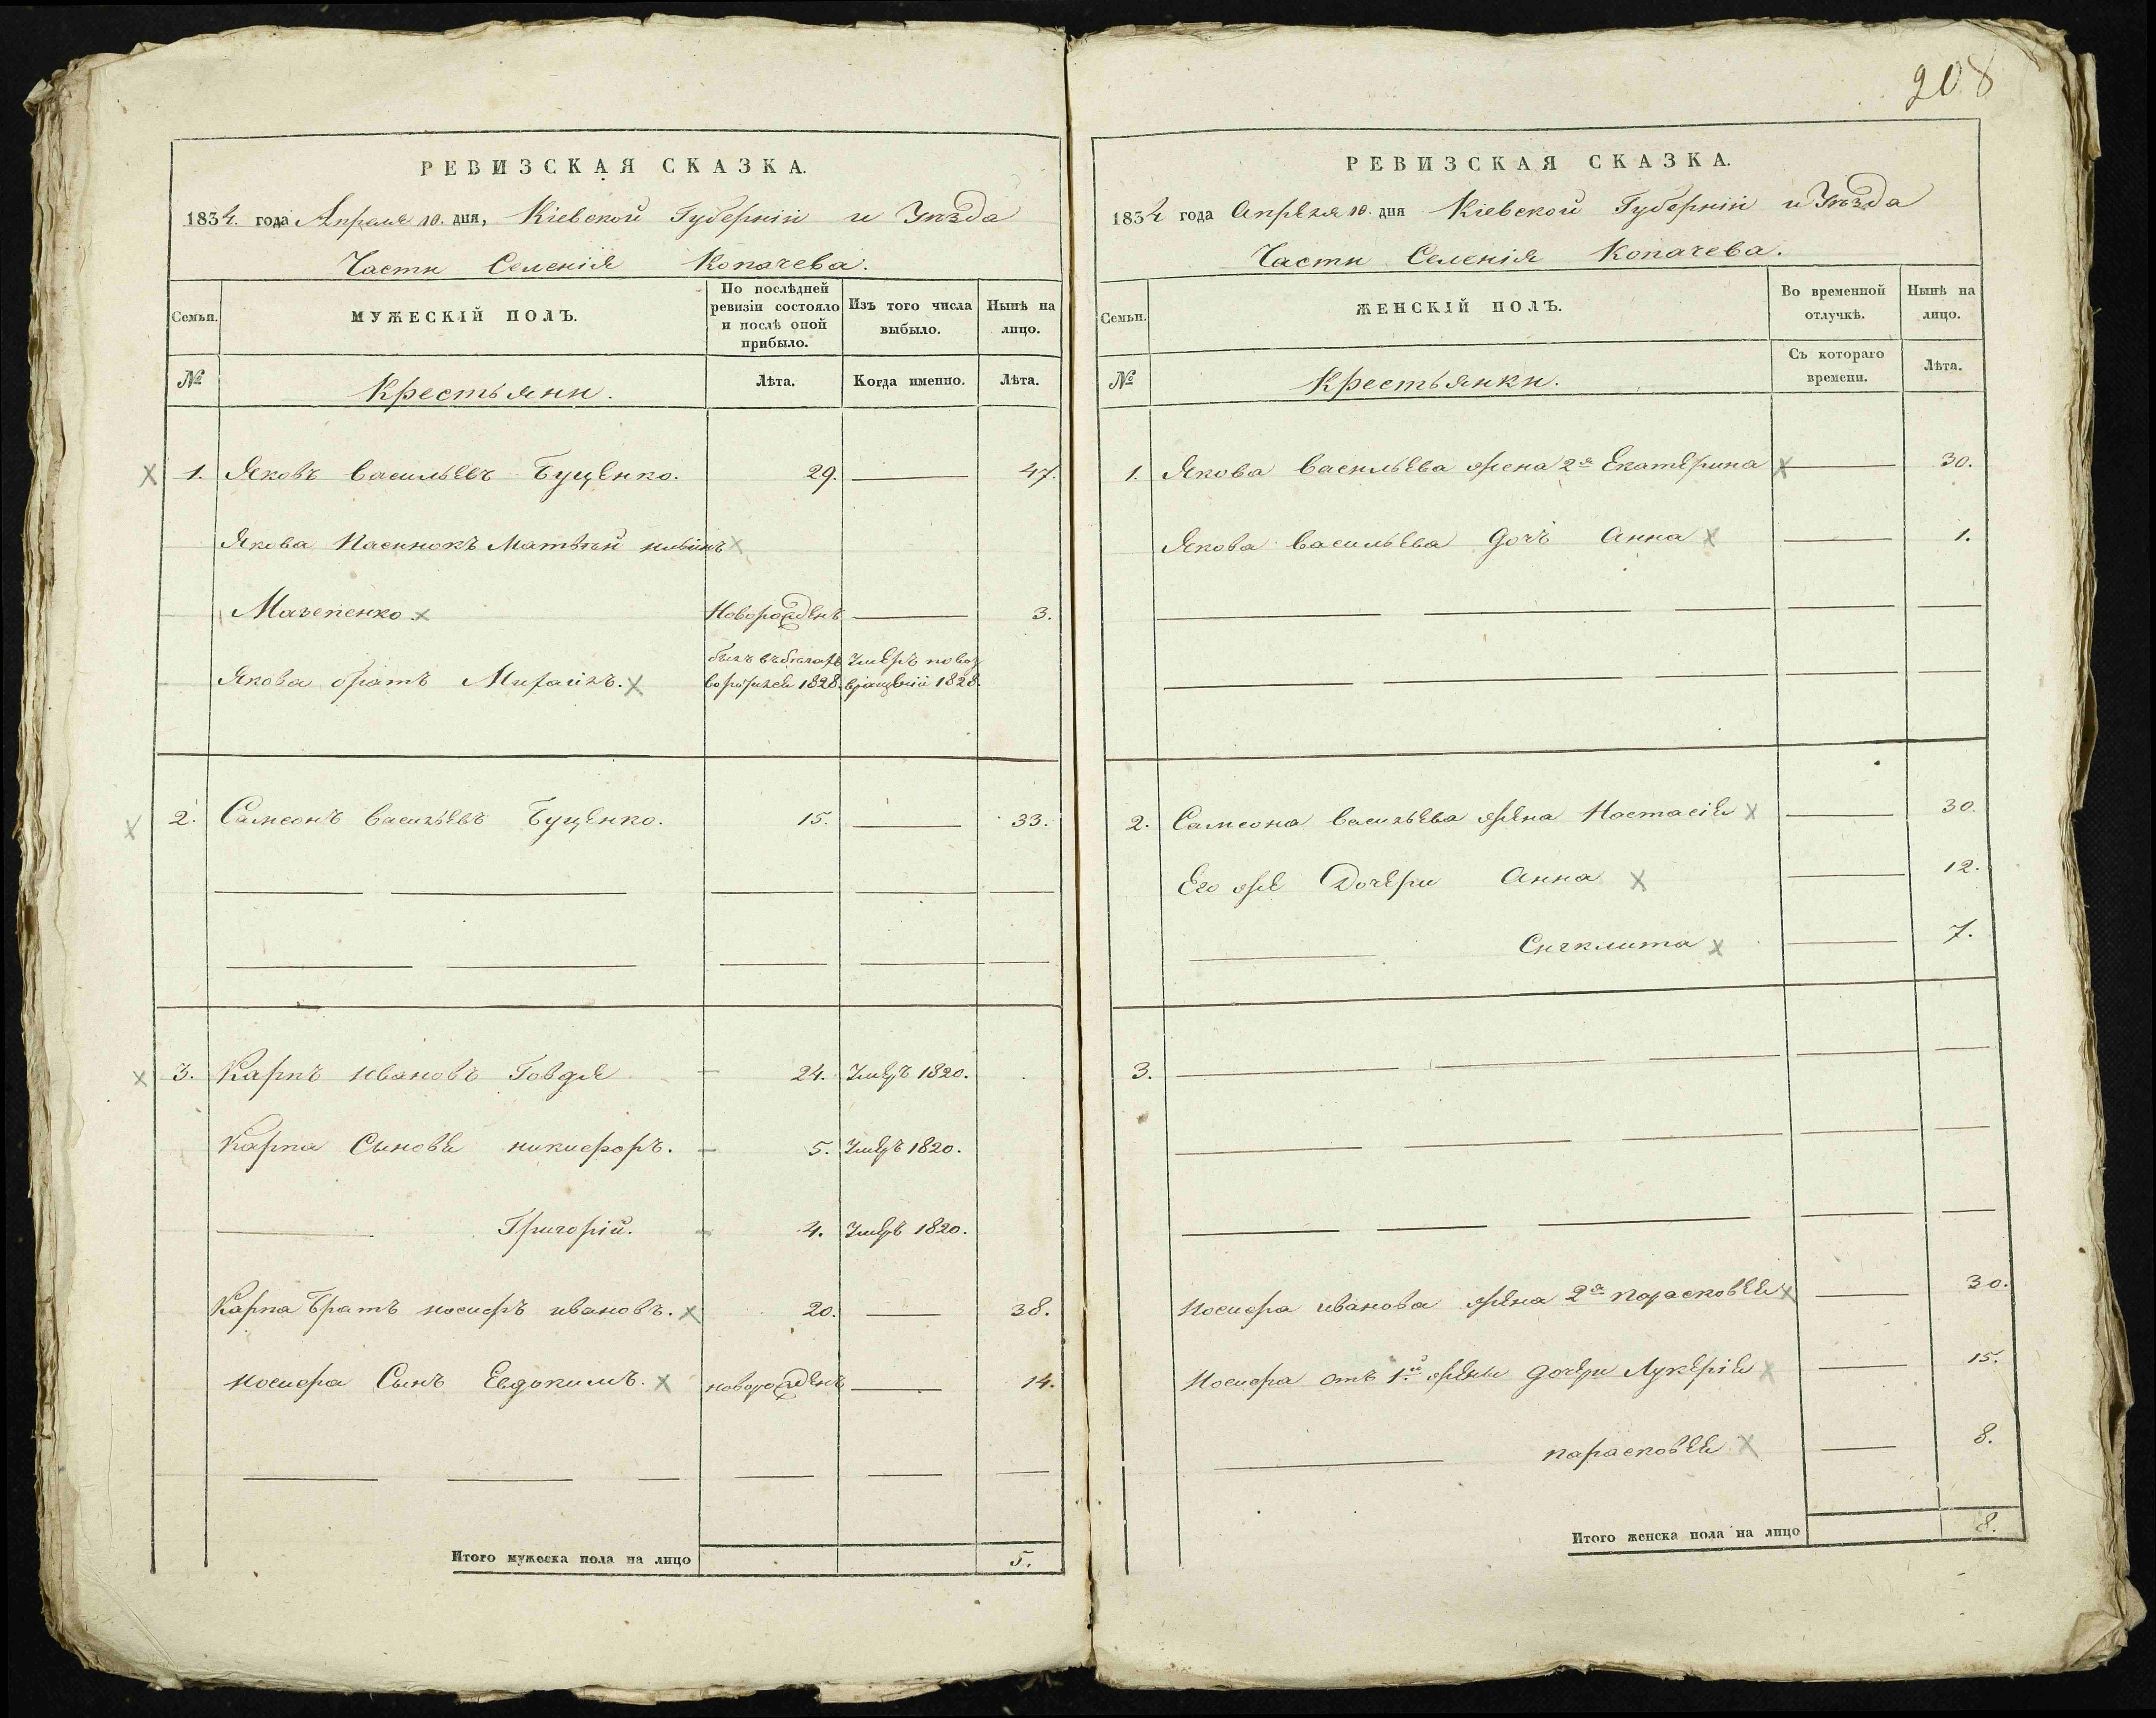 208
РЕВИЗСКАЯ СКАЗКА.
1834. года Апреля 10. дня, Кіевской Губерніи и Уѣзда
Части Селенія Копачева.
Семьи.
МУЖЕСКІЙ ПОЛЪ.
По послѣдней ревизіи состояло и послѣ оной прибыло.
Изъ того числа выбыло.
Нынѣ на лицо.
№
Крестьяни.
Лѣта.
Когда именно.
Лѣта.
1. Яковъ Васильевъ Буценко. 29. 47.
Якова Пасинокъ Матвѣй
Мазепенко Новорожденъ 3.
былъ въ бѣгахъ Умеръ по воз
Якова братъ Михаилъ. воротился 1828. вращеніи 1828.
2. Самсонъ Васильевъ Буценко. 15. 33.
3. Карпъ Ивановъ Говдя 24. Умеръ 1820.
Карпа Сыновья никифоръ. 5. Умеръ 1820.
Григорій. 4. Умеръ 1820.
Карпа Братъ иосифъ ивановъ. 20. 38.
иосифа Сынъ Евдокимъ. новорожденъ 14.
Итого мужеска пола на лицо 5.
РЕВИЗСКАЯ СКАЗКА.
1834 года Апреля 10. дня Кіевской Губерніи и Уѣзда
Части Селенія Копачева.
Семьи.
ЖЕНСКІЙ ПОЛЪ.
Во временной отлучкѣ.
Нынѣ на лицо.
№
Крестьянки.
Съ котораго времени.
Лѣта.
1. Якова Васильева жена 2я Екатерина 30.
Якова Васильева дочь Анна 1.
2. Самсона Васильева жена Настасія 30.
Его же Дочери Анна 12.
Сигклита 7.
3.
Иосифа иванова жена 2я парасковея 30.
Иосифа отъ 1й жены дочери Лукерія 15.
парасковея 8.
Итого женска пола на лицо 8.